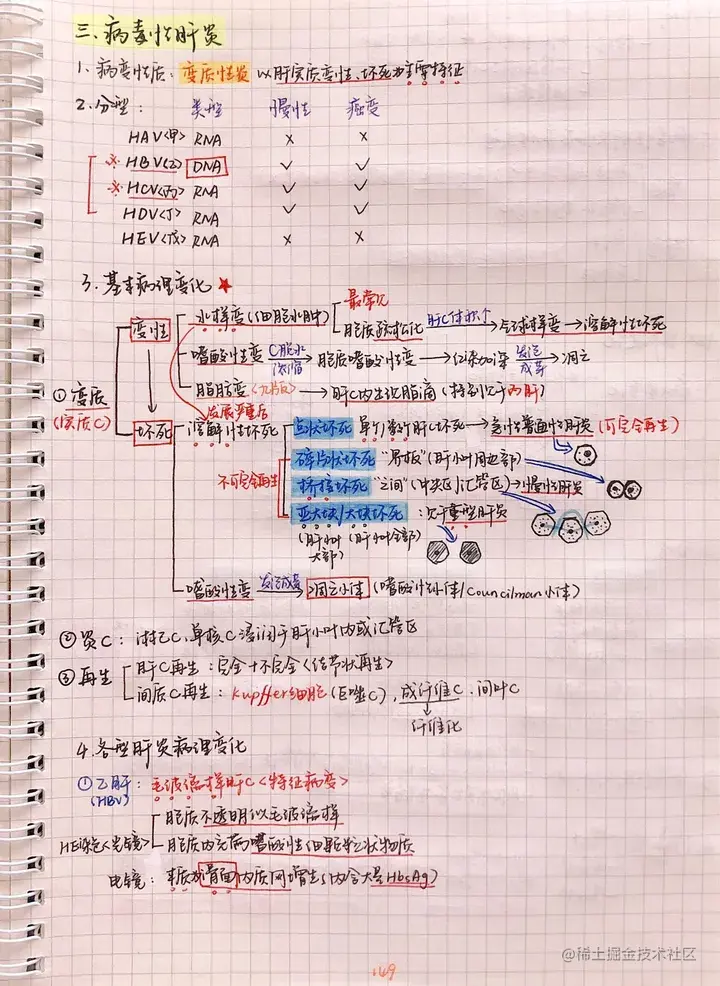 三、病毒性肝炎
1、病变性质：变质性炎 以肝实质变性、坏死为主要特征
2、分型： 类型 慢性 癌变
HAV<甲> RNA × ×
※ HBV<乙> DNA ✓ ✓
※ HCV<丙> RNA ✓ ✓
HDV<丁> RNA ✓ ✓
HEV<戊> RNA × ×
3、基本病理变化 ★
最常见
变性 水样变(细胞水肿) 胞质疏松化 肝C体积↑→气球样变→溶解性坏死
嗜酸性变 C脱水浓缩→胞质嗜酸性变→红染加深 发展成等→凋亡
① 变质 (实质C)
脂肪变<九版>→肝C内出现脂滴(特别见于丙肝)
发展严重后
坏死 溶解性坏死 点状坏死 单个/数个肝C坏死→急性普通性肝炎(可完全再生)
碎片状坏死 "界板"(肝小叶周边部)
不可完全再生
桥接坏死 "之间"(中央区/汇管区)→慢性肝炎
亚大块/大块坏死：见于重型肝炎
(肝小叶大部) (肝小叶全部)
嗜酸性变 发展成→凋亡小体(嗜酸性小体/Councilman小体)
② 炎C：淋巴C、单核C浸润于肝小叶内或汇管区
③ 再生 肝C再生：完全+不完全<结节状再生>
间质C再生：Kupffer细胞(巨噬C)、成纤维C、间叶C
纤维化
4、各型肝炎病理变化
① 乙肝：毛玻璃样肝C<特征病变>
(HBV)
胞质不透明似毛玻璃样
HE染色<光镜> 胞质内充满嗜酸性细颗粒状物质
电镜：本质为滑面内质网增生(内含大量HbsAg)
149
@稀土掘金技术社区